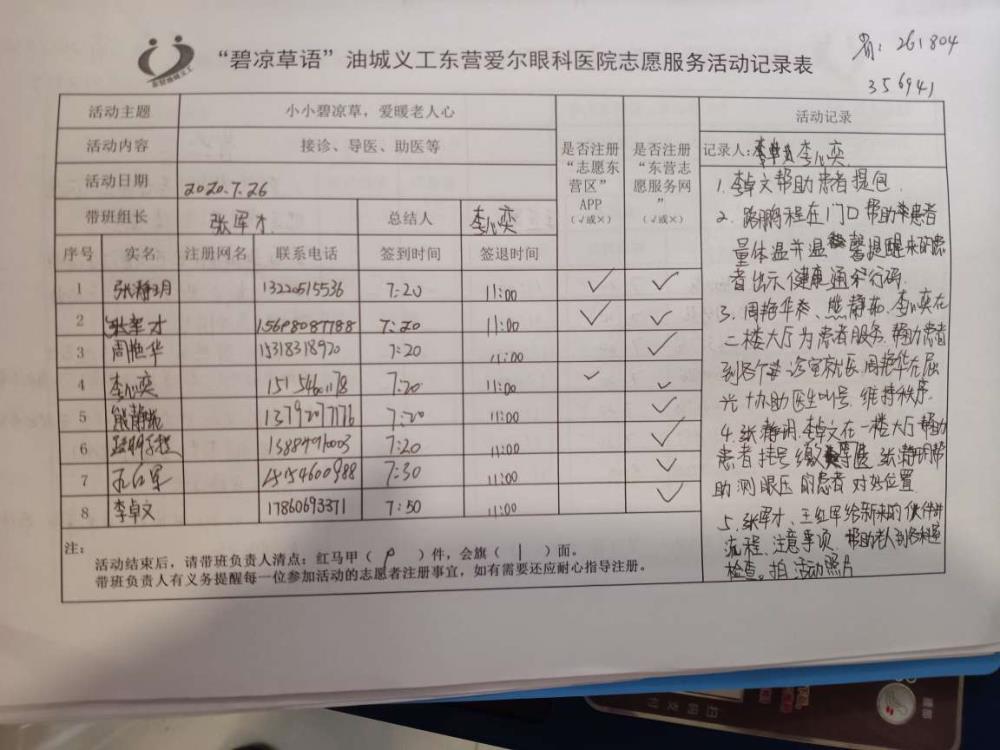 省: 261804
356941
东营油城义工
“碧凉草语”油城义工东营爱尔眼科医院志愿服务活动记录表
活动主题 小小碧凉草，爱暖老人心
活动内容 接诊、导医、助医等
活动日期 2020.7.26
带班组长 张军才 总结人 李心奕
是否注册“志愿东营区”APP（√或×）
是否注册“东营志愿服务网”（√或×）
序号 实名 注册网名 联系电话 签到时间 签退时间
1 张静玥 13220515536 7:20 11:00 √ √
2 张军才 15698087788 7:20 11:00 √ √
3 周艳华 15318318920 7:20 11:00 √
4 李心奕 7:20 11:00 √ √
5 熊静茹 7:20 11:00 √
6 路鹏程 7:20 11:00 √
7 王红军 15154600988 7:30 11:00 √
8 李卓文 17860693371 7:50 11:00 √
注：
活动结束后，请带班负责人清点：红马甲（ ）件，会旗（ 1 ）面。
带班负责人有义务提醒每一位参加活动的志愿者注册事宜，如有需要还应耐心指导注册。
活动记录
记录人: 李心奕
1. 李卓文帮助患者提包
2. 路鹏程在门口帮助患者
量体温并温馨提醒来的患
者出示健康通行码.
3. 周艳华、熊静茹、李心奕在
二楼大厅为患者服务.帮助患者
到各个诊室就医,周艳华在屈
光协助医生叫号,维持秩序.
4. 张静玥.李卓文在一楼大厅帮助
患者挂号缴费等医,张静玥帮
助测眼压的患者对好位置
5. 张军才、王红军给新来的伙伴讲
流程、注意事项,帮助老人到各科室
检查。拍活动照片
扫码支付